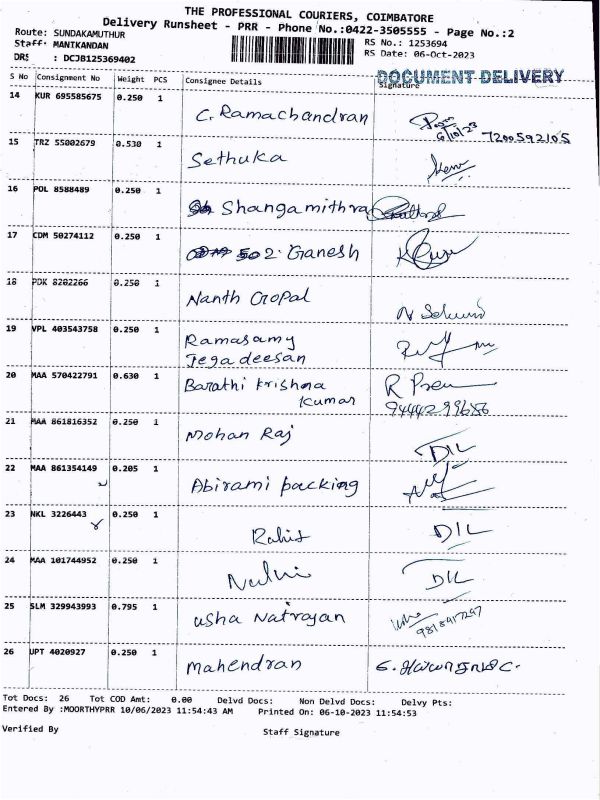 THE PROFESSIONAL COURIERS, COIMBATORE
Delivery Runsheet - PRR - Phone No.:0422-3505555 - Page No.:2
Route: SUNDAKAMUTHUR
Staff: MANIKANDAN
DRS : DCJB125369402
RS No.: 1253694
RS Date: 06-Oct-2023
DOCUMENT DELIVERY
S No Consignment No Weight PCS Consignee Details Signature
14 KUR 695585675 0.250 1 C. Ramachandran 6/10/23 7200592105
15 TRZ 55002679 0.530 1 Sethuka
16 POL 8588489 0.250 1 Shangamithra
17 CDM 50274112 0.250 1 502. Ganesh
18 PDK 8202266 0.250 1 Nanth Gopal
19 VPL 403543758 0.250 1 Ramasamy
Jegadeesan
20 MAA 570422791 0.630 1 Barathi Krishna R Prem
Kumar 9444299686
21 MAA 861816352 0.250 1 Mohan Raj DIL
22 MAA 861354149 0.205 1 Abirami packing
23 NKL 3226443 0.250 1 DIL
24 MAA 101744952 0.250 1 DIL
25 SLM 329943993 0.795 1 Usha Natrayan Usha
26 UPT 4020927 0.250 1 Mahendran
Tot Docs: 26 Tot COD Amt: 0.00 Delvd Docs: Non Delvd Docs: Delvy Pts:
Entered By :MOORTHYPRR 10/06/2023 11:54:43 AM Printed On: 06-10-2023 11:54:53
Verified By Staff Signature